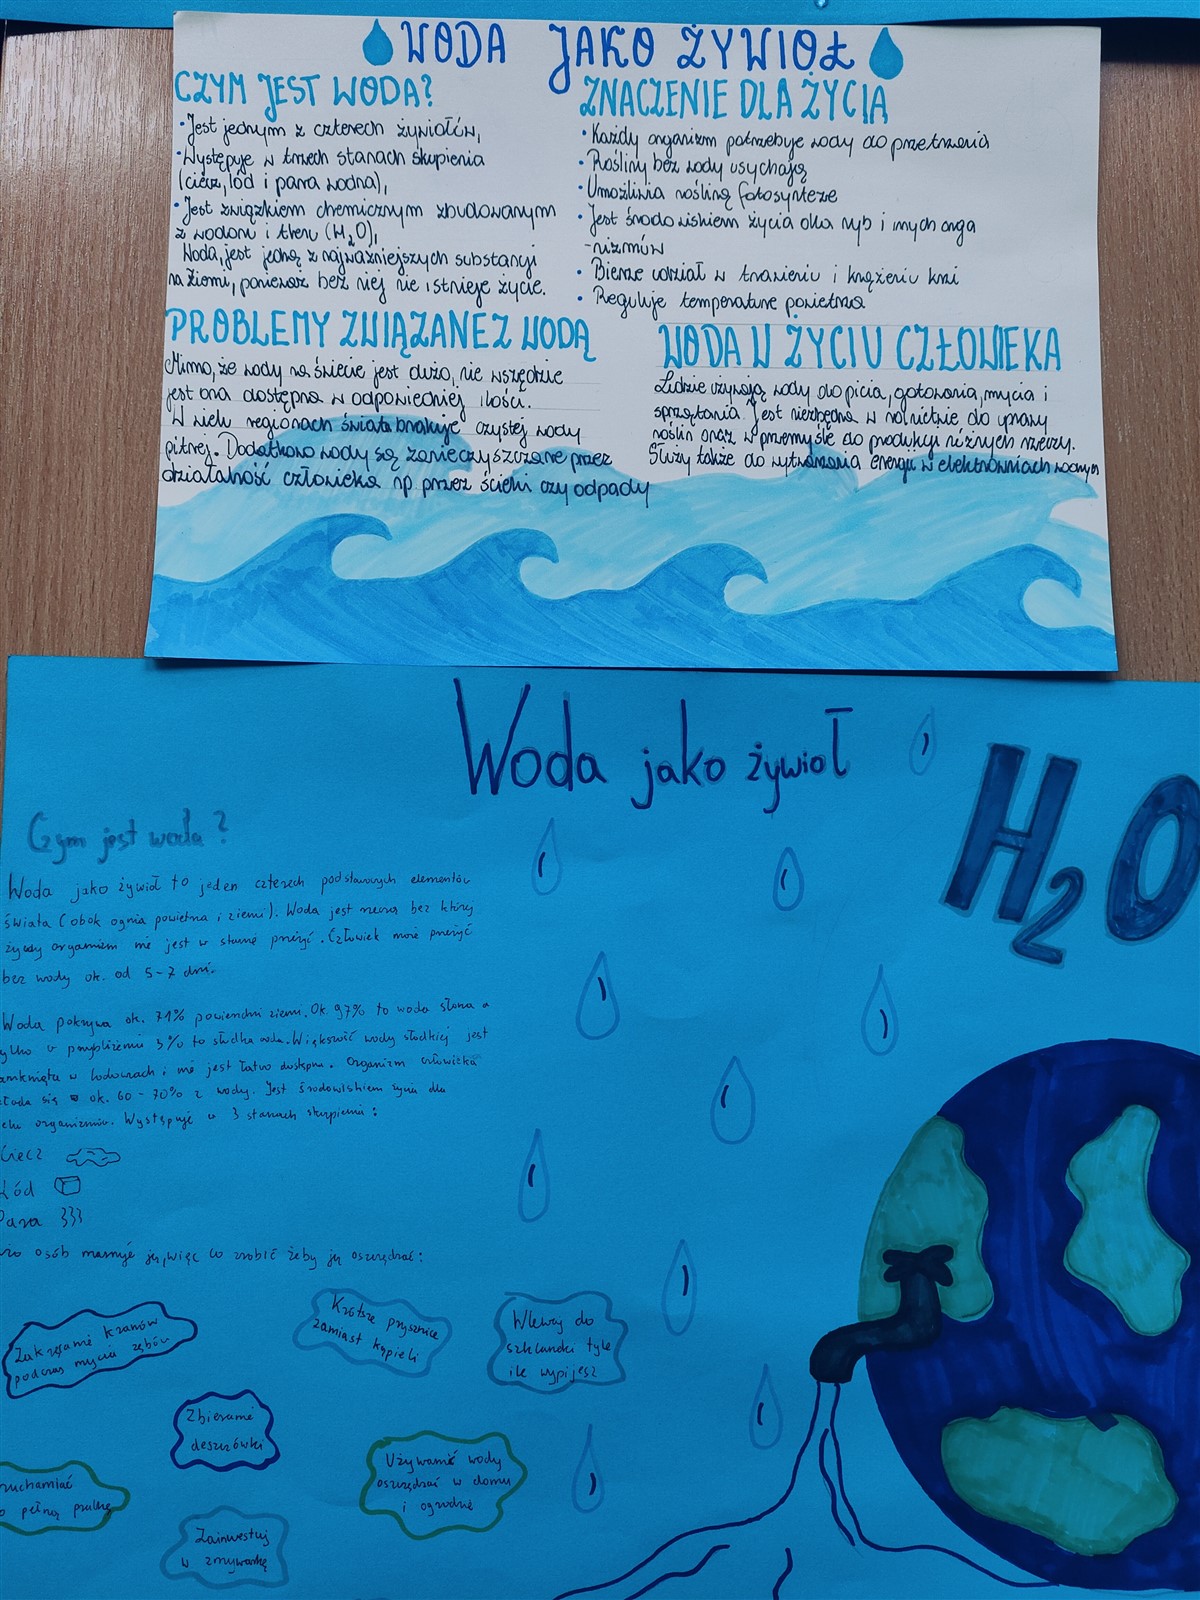 WODA JAKO ŻYWIOŁ
CZYM JEST WODA?
• Jest jednym z czterech żywiołów,
• Występuje w trzech stanach skupienia
(ciecz, lód i para wodna),
• Jest związkiem chemicznym zbudowanym
z wodoru i tlenu (H2O),
Woda, jest jedną z najważniejszych substancji
na Ziemi, ponieważ bez niej nie istnieje życie.
ZNACZENIE DLA ŻYCIA
• Każdy organizm potrzebuje wody do przetrwania
• Rośliny bez wody usychają
• Umożliwia rośliną fotosynteze
• Jest środowiskiem życia dla ryb i innych orga
-nizmów
• Bierze udział w trawieniu i krążeniu krwi
• Reguluje temperature powietrza
PROBLEMY ZWIĄZANE Z WODĄ
Mimo, że wody na świecie jest dużo, nie wszędzie
jest ona dostępna w odpowiedniej ilości.
W wielu regionach świata brakuje czystej wody
pitnej. Dodatkowo wody są zanieczyszczane przez
działalność człowieka np. przez ścieki czy odpady
WODA W ŻYCIU CZŁOWIEKA
Ludzie używają wody do picia, gotowania, mycia i
sprzątania. Jest niezbędna w rolnictwie do uprawy
roślin oraz w przemyśle do produkcji różnych rzeczy.
Służy także do wytwarzania energii w elektrowniach wodnych
Woda jako żywioł
H2O
Czym jest woda?
Woda jako żywioł to jeden czterech podstawowych elementów
świata (obok ognia powietrza i ziemi). Woda jest bez której
żywy organizm nie jest w stanie przeżyć. Człowiek może przeżyć
bez wody ok. od 5-7 dni.
Woda pokrywa ok. 71% powierzchni ziemi. Ok. 97% to woda słona a
tylko w przybliżeniu 3% to słodka woda. Większość wody słodkiej jest
zamknięta w lodowcach i nie jest łatwo dostępna. Organizm człowieka
składa się ok. 60-70% z wody. Jest środowiskiem życia dla
wielu organizmów. Występuje w 3 stanach skupienia:
Ciecz
Lód
Para
osób marnuje ją, więc co zrobić żeby ją oszczędzać:
Zakręcanie kranów
podczas mycia zębów
Krótsze prysznice
zamiast kąpieli
Wlewaj do
szklanki tyle
ile wypijesz
Zbieranie
deszczówki
Używanie wody
oszczędzać w domu
i ogrodzie
ruchamiać
pełną pralkę
Zainwestuj
w zmywarkę